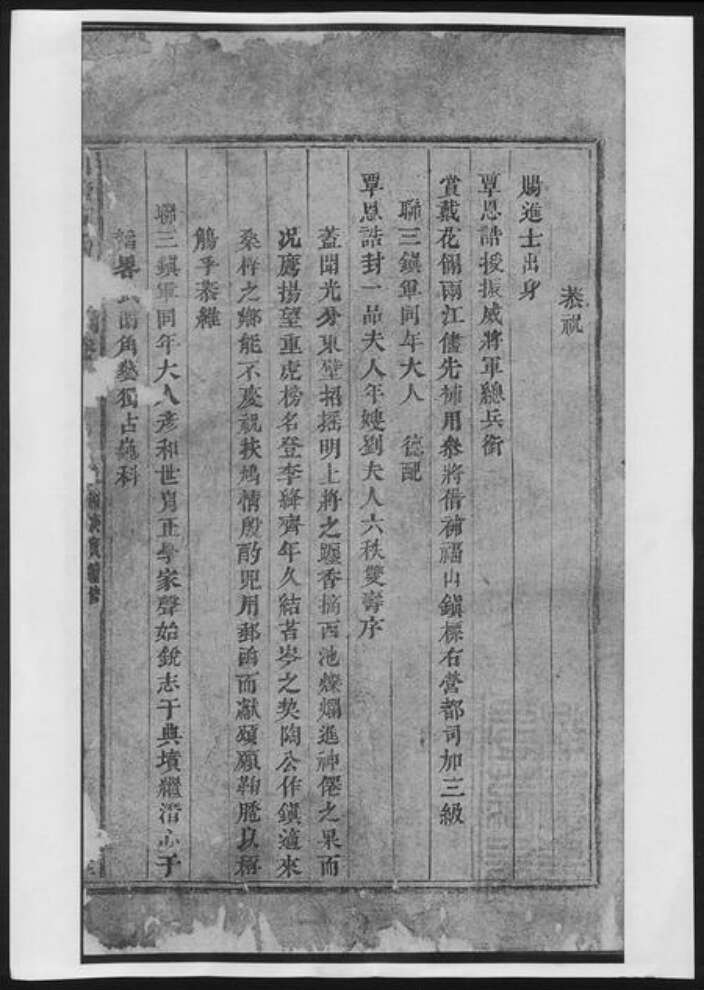 恭祝
賜進士出身
覃恩誥授振威將軍總兵銜
賞戴花翎兩江儘先補用叅將借補福山鎮標右營都司加三級
聯三鎮軍同年大人　德配
覃恩誥封一品夫人年嫂劉夫人六秩雙壽序
蓋聞光分東壁招搖明上將之躔香摘西池燦爛進神僊之果而
况鷹揚望重虎榜名登李絳齊年久結苔岑之契陶公作鎮適來
桑梓之鄉能不慶祝扶鳩情殷酌兕用郵函而獻頌願鞠跽以稱
觴乎恭維
聯三鎮軍同年大人彥和世冑正學家聲始銳志于典墳繼潛心于
韜畧 角藝獨占巍科